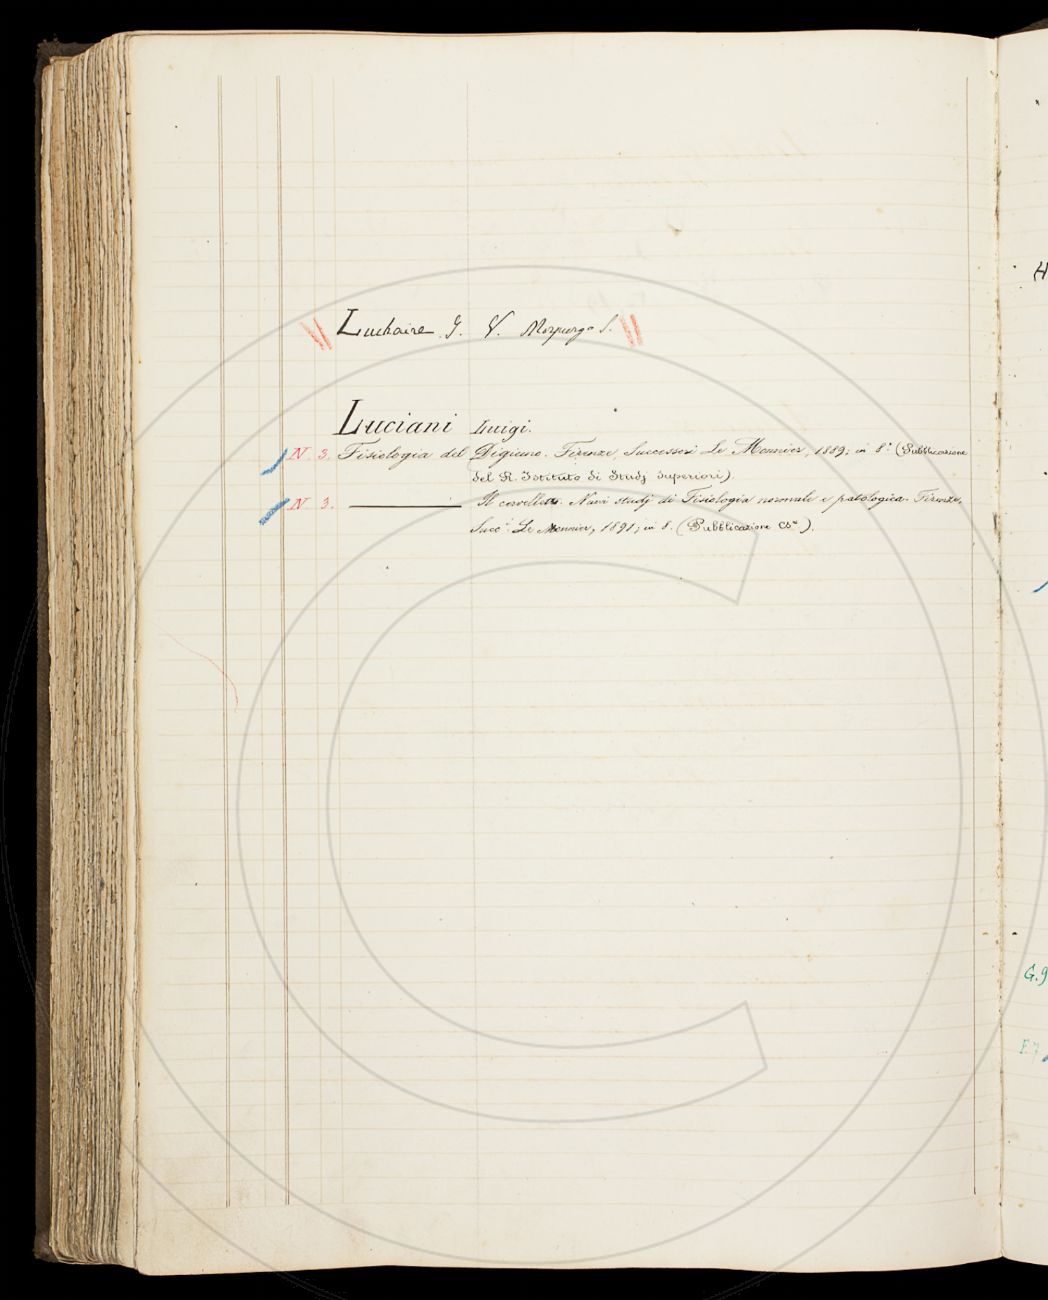 Luchaire J. V. Morpurgo S.
Luciani Luigi.
N. 3. Fisiologia del Digiuno. Firenze Successori Le Monnier, 1889; in 8.° (Pubblicazione
del R. Istituto di Studj Superiori).
N. 3. ——— Il cervelletto. Nuovi studj di Fisiologia normale e patologica. Firenze,
Succ.i Le Monnier, 1891; in 8. (Pubblicazione
G. 9
F. 7